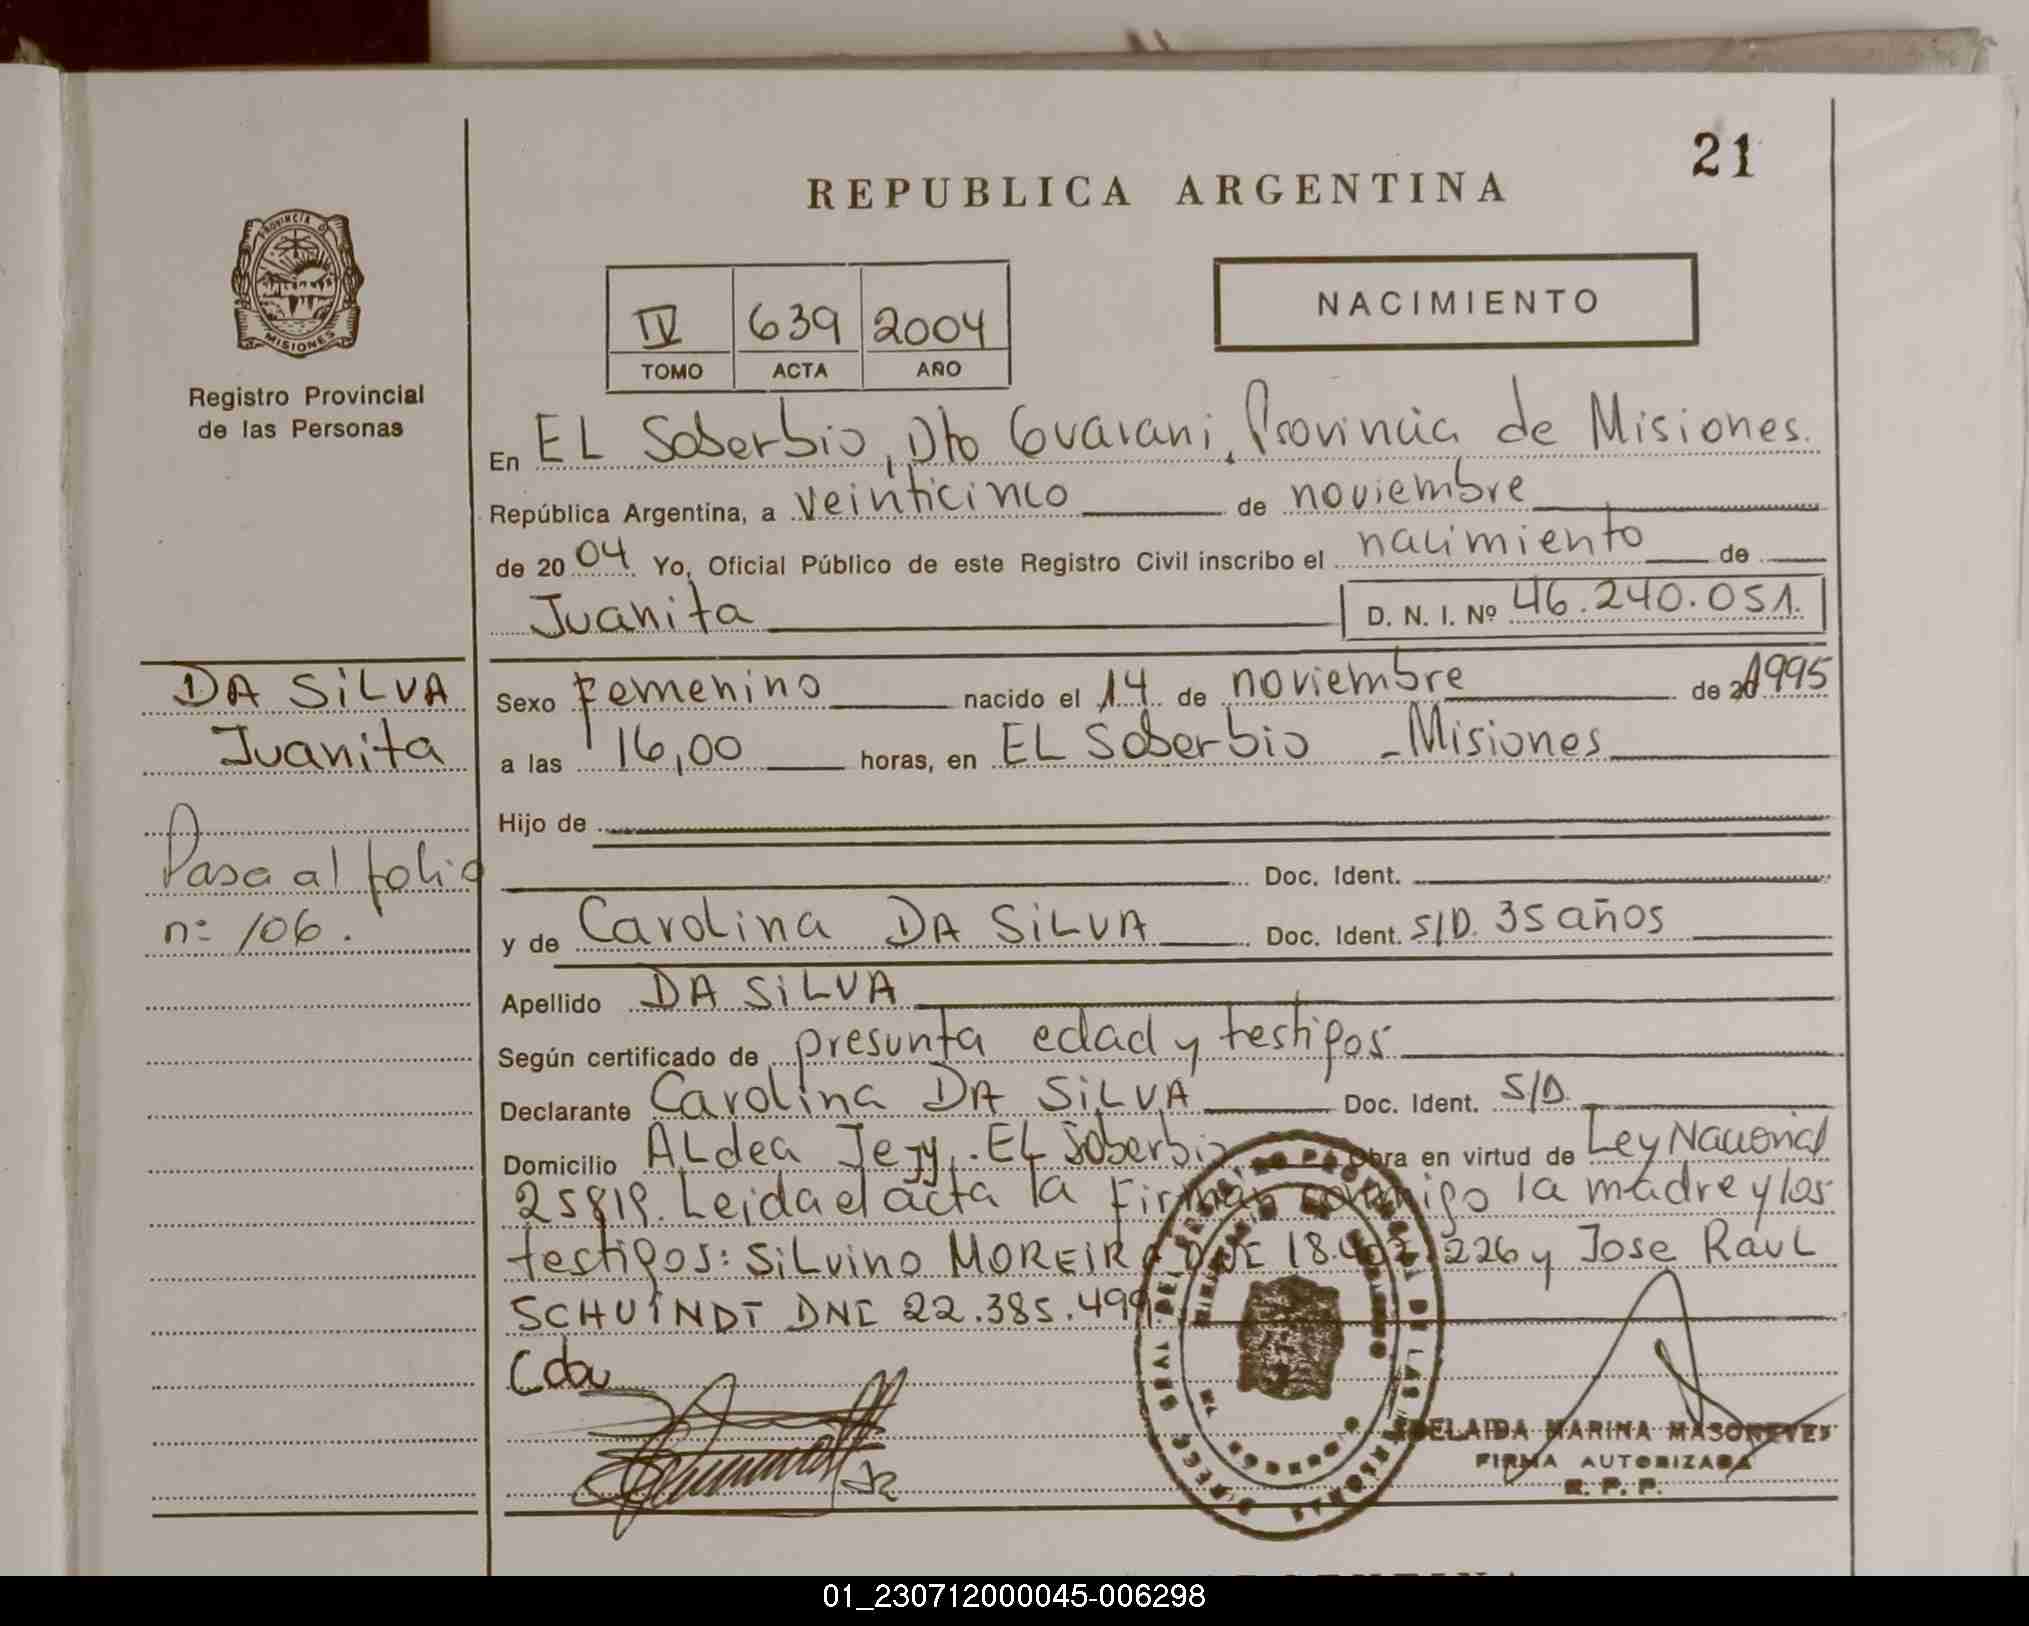 21
REPUBLICA ARGENTINA
PROVINCIA DE
MISIONES
Registro Provincial
de las Personas
NACIMIENTO
IV 639 2004
TOMO ACTA AÑO
En EL Soberbio, Dto Guarani, Provincia de Misiones.
República Argentina, a veinticinco de noviembre
de 2004 Yo, Oficial Público de este Registro Civil inscribo el nacimiento de
Juanita D. N. I. Nº 46.240.051.
DA SiLVA
Juanita
Pasa al folio
nº 106.
Sexo Femenino nacido el 14 de noviembre de 20 1995
a las 16,00 horas, en EL Soberbio - Misiones
Hijo de
Doc. Ident.
y de Carolina DA SiLVA Doc. Ident. S/D. 35 años
Apellido DA SiLVA
Según certificado de presunta edad y testigos
Declarante Carolina DA SiLVA Doc. Ident. S/D.
Domicilio ALdea Jejy. EL Soberbio Obra en virtud de Ley Nacional
25819. Leida el acta la Firman conmigo la madre y los
testigos: SiLvino MOREIRA DNI 18. 226 y Jose RauL
SCHUINDT DNI 22.385.499.
MARINA
FIRMA AUTORIZADA
R. P. P.
01_230712000045-006298